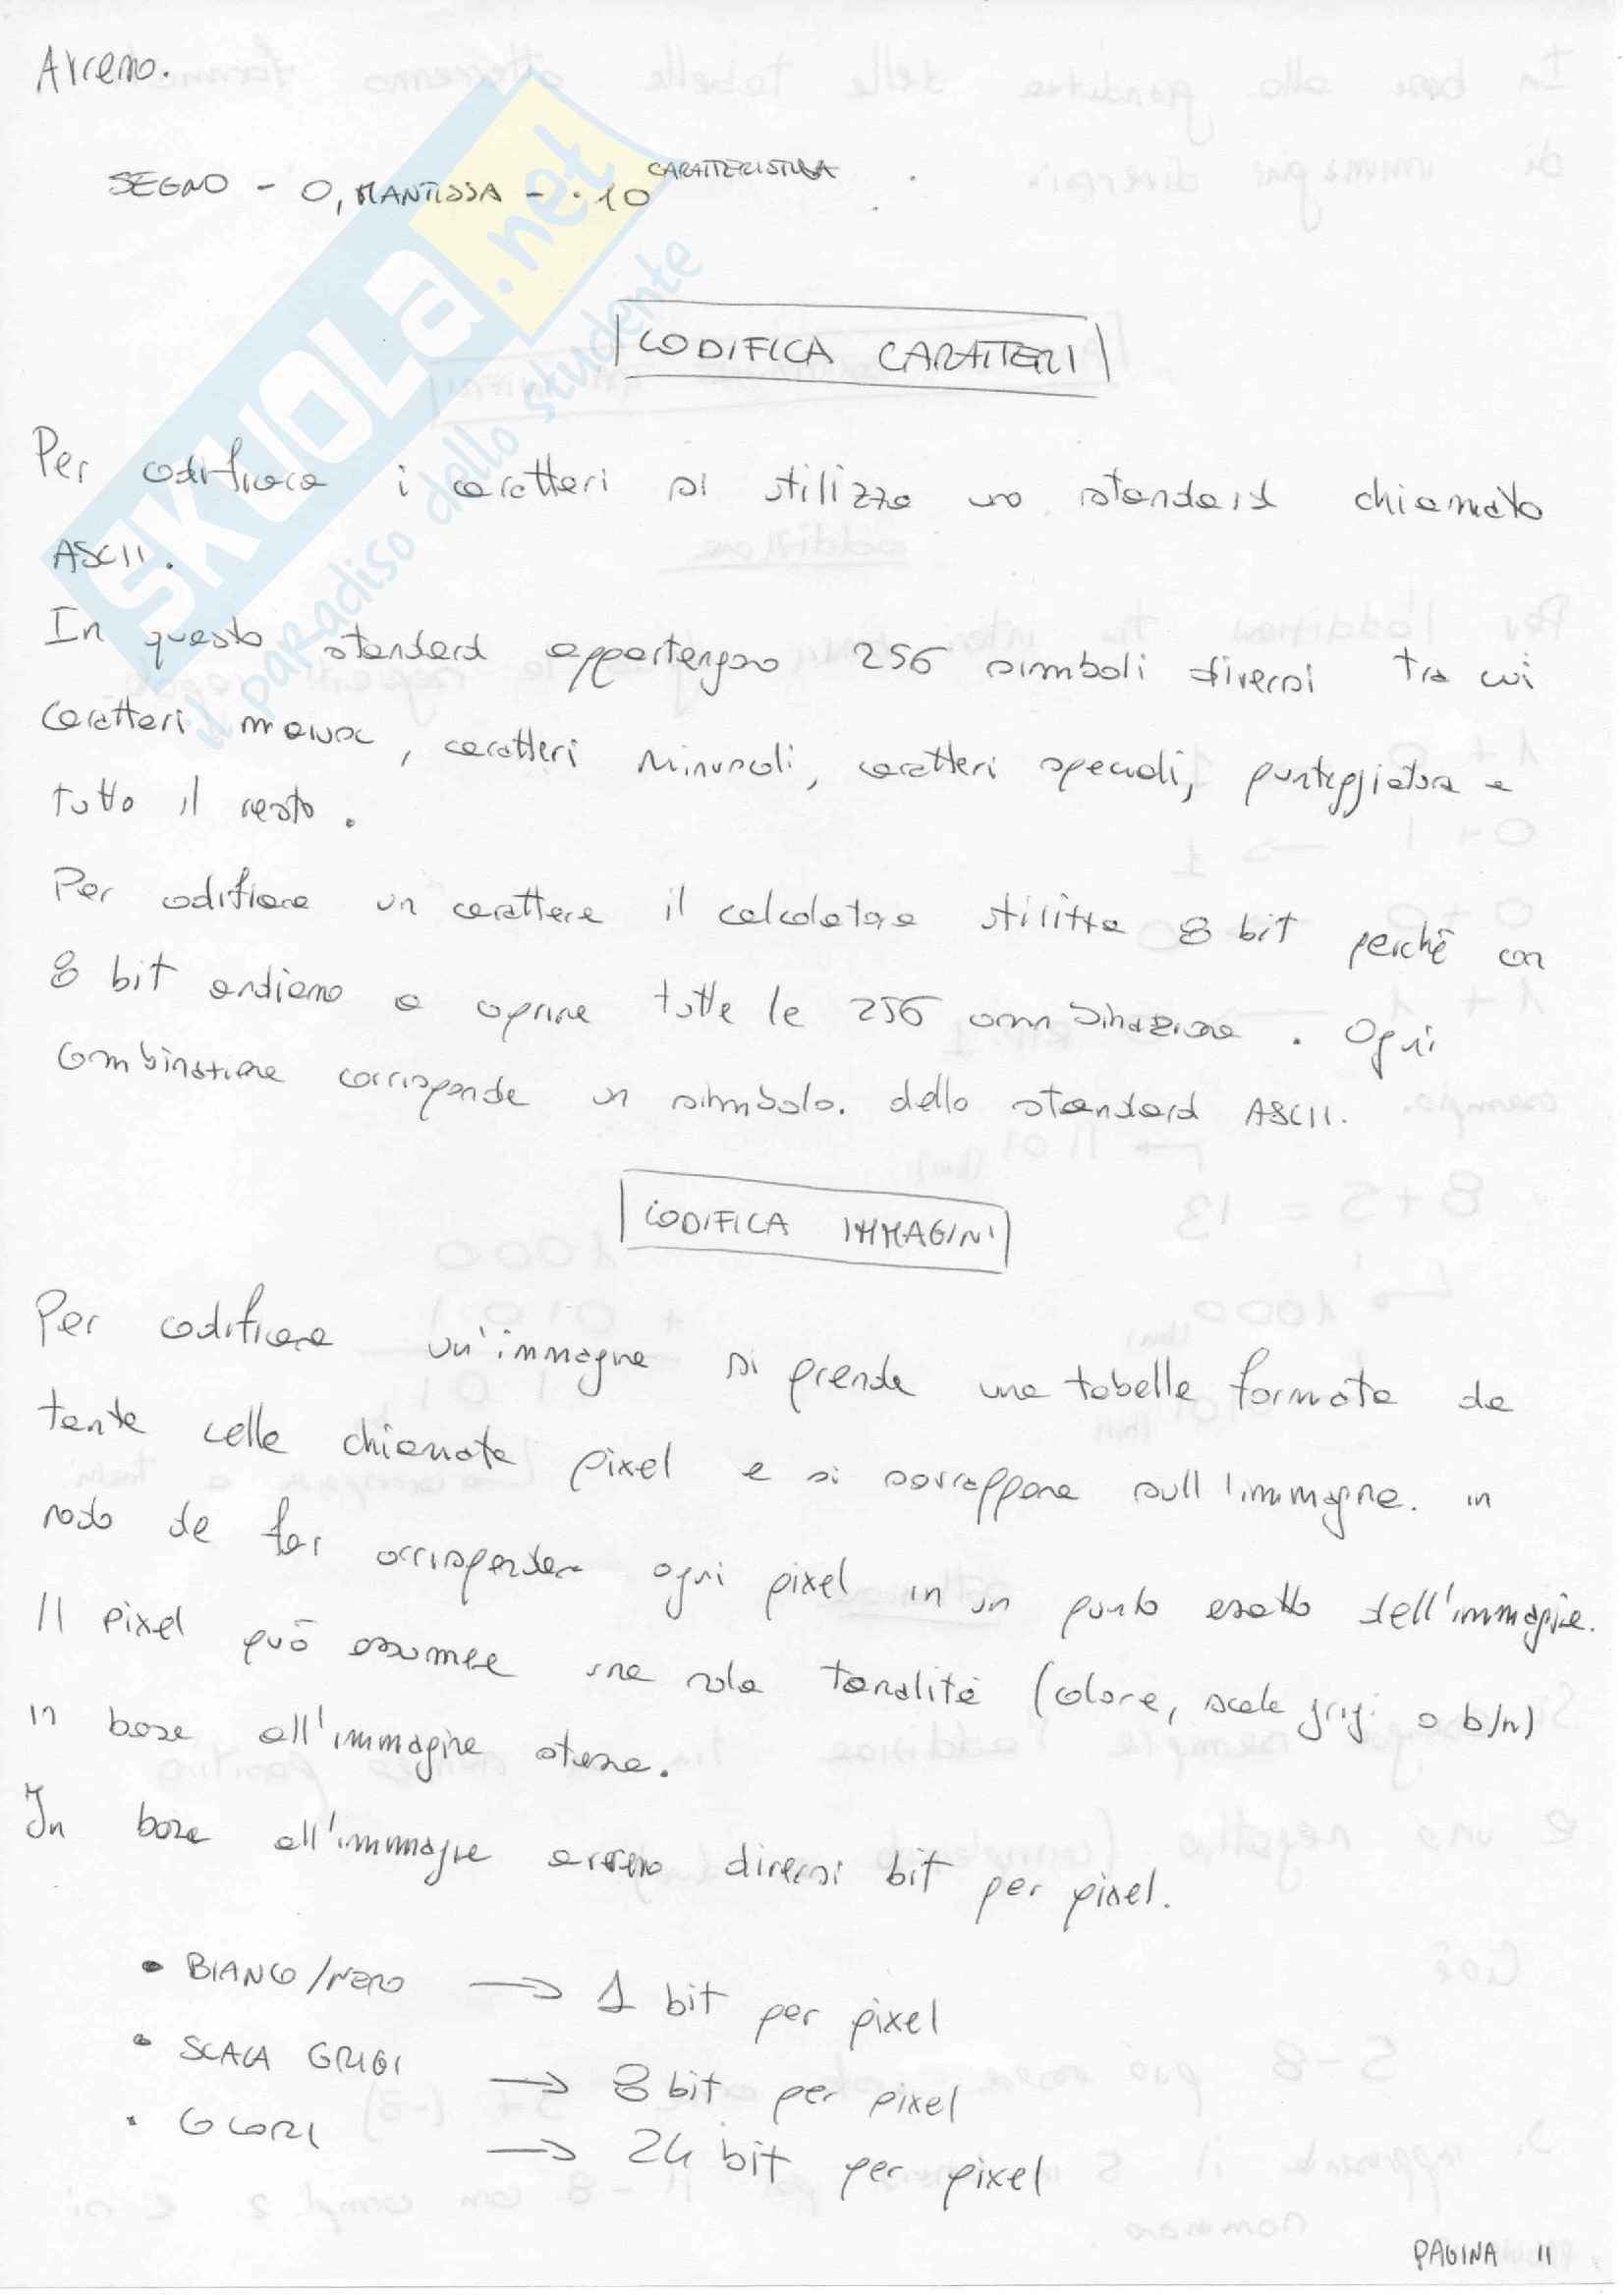 Avremo.
SEGNO - 0, MANTISSA - · 10 CARATTERISTICA
CODIFICA CARATTERI
Per codificare i caratteri si utilizza uno standard chiamato
ASCII.
In questo standard appartengono 256 simboli diversi tra cui
caratteri maiusc, caratteri minuscoli, caratteri speciali, punteggiatura e
tutto il resto.
Per codificare un carattere il calcolatore utilizza 8 bit perchè con
8 bit andiamo a coprire tutte le 256 combinazione. Ogni
combinazione corrisponde un simbolo. dello standard ASCII.
CODIFICA IMMAGINI
Per codificare un'immagine si prende una tabella formata da
tante celle chiamate pixel e si sovrappone sull'immagine. in
modo da far corrispondere ogni pixel in un punto esatto dell'immagine.
Il pixel può assumere una sola tonalità (colore, scala grigi o b/n)
in base all'immagine stessa.
In base all'immagine avremo diversi bit per pixel.
• BIANCO/NERO → 1 bit per pixel
• SCALA GRIGI → 8 bit per pixel
• COLORI → 24 bit per pixel
PAGINA 11
SKUOLa.net
il paradiso dello studente